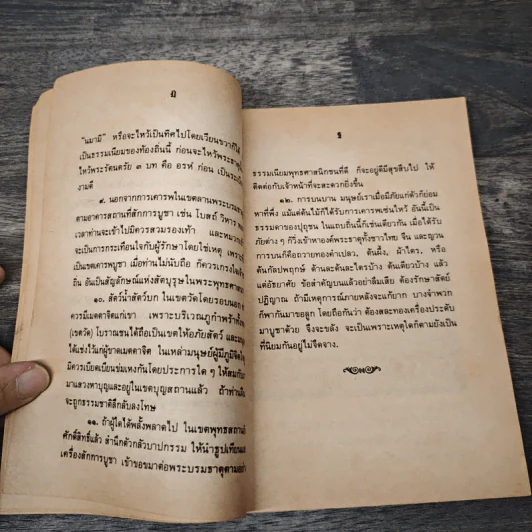 "นมามิ" หรือจะไหว้เป็นทิศไปโดยเวียนขวาก็ได้
เป็นธรรมเนียมของท้องถิ่นนี้ ก่อนจะไหว้พระธาตุ
ไหว้พระรัตนตรัย ๓ บท คือ อรหํ ก่อน เป็นระเบียบ
งามดี
๙. นอกจากการเคารพในเขตลานพระบรม
ตามอาคารสถานที่สักการบูชา เช่น โบสถ์ วิหาร
เวลาท่านจะเข้าไปมีควรสวมรองเท้า และหมวก
จะเป็นการกระเทือนใจกับผู้รักษาโดยใช่เหตุ เพราะ
เป็นเขตเคารพบูชา เมื่อท่านไม่นับถือ ก็ควรเกรงใจ
ถิ่น อันเป็นสัญลักษณ์แห่งสัตบุรุษในพระพุทธศาสนา
๑๐. สัตว์น้ำสัตว์บก ในเขตวัดโดยรอบนอก
ควรมีเมตตาจิตแก่เขา เพราะบริเวณภูกำพร้าทั้ง
(เขตวัด) โบราณชนได้ถือเป็นเขตให้อภัยสัตว์ และ
ได้แข่งไว้แก่ผู้ขาดเมตตาจิต ในเหล่ามนุษย์ผู้มีภูมิจิต
มีควรเบียดเบียนข่มเหงกันโดยประการใด ๆ ให้สม
มาแสวงหาบุญและอยู่ในเขตบุญสถานแล้ว ถ้าท่าน
จะถูกธรรมชาติลึกลับลงโทษ
๑๑. ถ้าผู้ใดได้พลั้งพลาดไป ในเขตพุทธสถาน
ศักดิ์สิทธิ์แล้ว สำนึกตัวกลัวบาปกรรม ให้นำธูปเทียน
เครื่องสักการบูชา เข้าขอขมาต่อพระบรมธาตุตาม
ธรรมเนียมพุทธศาสนิกชนที่ดี ก็จะอยู่ดีมีสุขสืบไป ให้
ติดต่อกับเจ้าหน้าที่จะสะดวกยิ่งขึ้น
๑๒. การบนบาน มนุษย์เราเมื่อมีภัยแก่ตัวก็ย่อม
หาที่พึ่ง แม้แต่ต้นไม้ก็ได้รับการเคารพเซ่นไหว้ อันนี้เป็น
ธรรมดาของปุถุชน ในแถบถิ่นนี้ก็เช่นเดียวกัน เมื่อได้รับ
ภัยต่าง ๆ ก็วิ่งเข้าหาองค์พระธาตุทั้งชาวไทย จีน และญวน
การบนก็คือถวายทองคำเปลว, ต้นผึ้ง, ผ้าไตร, หรือ
ต้นกัลปพฤกษ์ ต้านละต้นละไตรบ้าง ต้นเดียวบ้าง แล้ว
แต่อัธยาศัย ข้อสำคัญบนแล้วอย่าลืมเสีย ต้องรักษาสัตย์
ปฏิญาณ ถ้ามีเหตุการณ์ภายหลังจะแก้ยาก บางจำพวก
ก็พากันมาขอลูก โดยถือกันว่า ต้องสละทองเครื่องประดับ
มาบูชาด้วย จึงจะขลัง จะเป็นเพราะเหตุใดก็ตามยังเป็น
ที่นิยมกันอยู่ไม่จืดจาง.